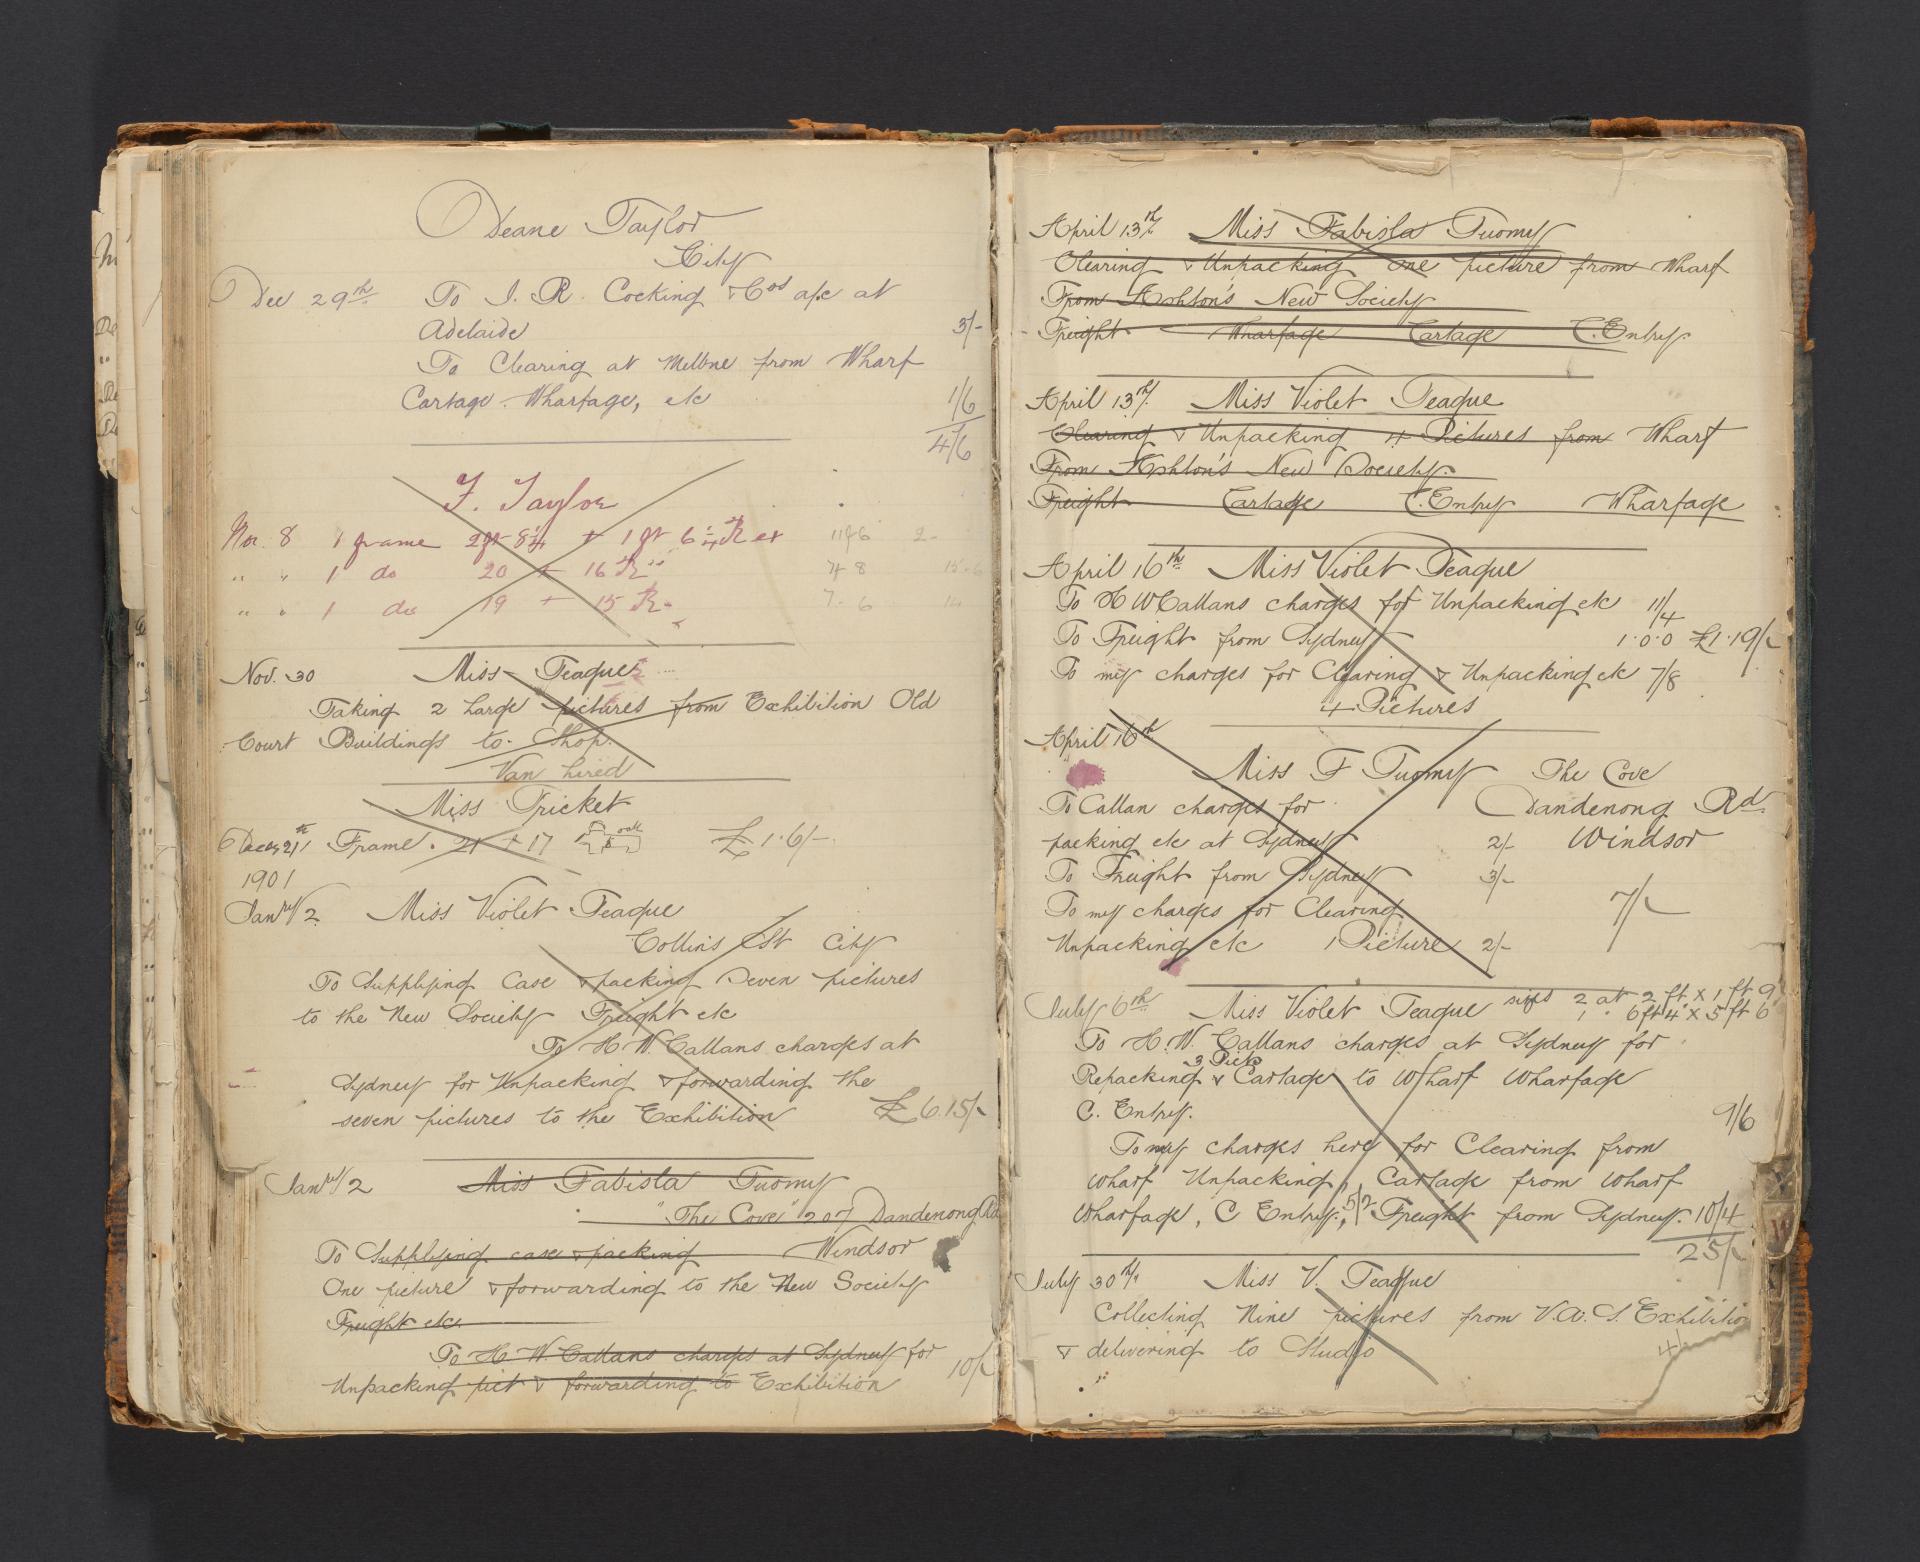 Deane Taylor
City
Dec 29th To J. R. Cocking & Cos a/c at
Adelaide 3/-
To Clearing at Melbne from Wharf
Cartage Wharfage, etc 1/6
4/6
F. Taylor
Nov. 8 1 frame 2ft 8 1/4 + 1 ft 6 1/4 11/6 2-
" " 1 do 20 + 16 7/8 15.6
" " 1 do 19 + 15 7-6 14
Nov. 30 Miss Teague
Taking 2 Large pictures from Exhibition Old
Court Buildings to Shop.
Van hired
Miss Tricket
Dec 21st Frame. 21 + 17 oak £1.6/-
1901
Janry 2 Miss Violet Teague
Collins St City
To Supplying Case & packing Seven pictures
to the New Society Freight etc
To H. W. Callans charges at
Sydney for Unpacking & forwarding the
seven pictures to the Exhibition £6.15/-
Janry 2 Miss Fabisla Tuomy
"The Cove" 207 Dandenong Rd
To Supplying case & packing Windsor
One picture & forwarding to the New Society
Freight etc.
To H. W. Callans charges at Sydney for
Unpacking pict & forwarding to Exhibition 10/-
April 13th Miss Fabisla Tuomy
Clearing & Unpacking one picture from Wharf
From Ashton's New Society
Freight Wharfage Cartage C. Entry
April 13th Miss Violet Teague
Clearing & Unpacking 4 Pictures from Wharf
From Ashton's New Society.
Freight Cartage C. Entry Wharfage
April 16th Miss Violet Teague
To H W Callans charges for Unpacking etc 11/4
To Freight from Sydney 1.0.0 £1.19/-
To my charges for Clearing & Unpacking etc 7/8
4 Pictures
April 16th
Miss F Tuomy The Cove
To Callan charges for Dandenong Rd.
packing etc at Sydney 2/- Windsor
To Freight from Sydney 3/-
To my charges for Clearing 7/-
Unpacking etc 1 Picture 2/-
July 6th Miss Violet Teague sizes 2 at 2 ft x 1 ft 9
1 " 6ft 4 x 5 ft 6
To H. W. Callans charges at Sydney for
3 Picts
Repacking & Cartage to Wharf Wharfage
C. Entry. 9/6
To my charges here for Clearing from
Wharf Unpacking, Cartage from Wharf
Wharfage, C Entry; 5/2 Freight from Sydney. 10/4
25/-
July 30th Miss V. Teague
Collecting Nine pictures from V.A.S. Exhibition
& delivering to Studio 4/-